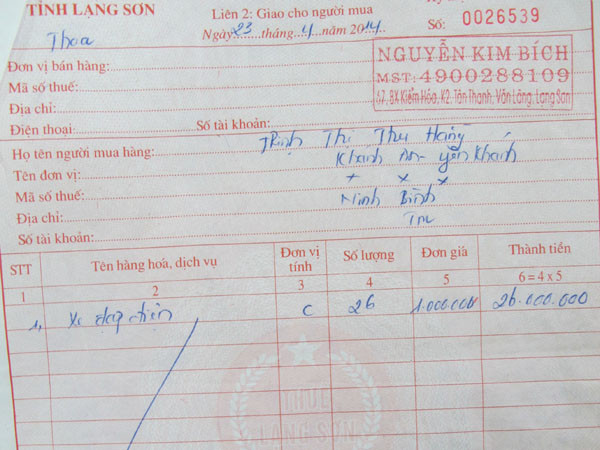 TỈNH LẠNG SƠN
Liên 2: Giao cho người mua
Ngày 23 tháng 4 năm 2014
Số: 0026539
Thoa
NGUYỄN KIM BÍCH
MST: 4900288109
67, BX Kiểm Hóa, K2. Tân Thanh, Văn Lãng, Lạng Sơn
Đơn vị bán hàng:
Mã số thuế:
Địa chỉ:
Điện thoại: Số tài khoản:
Họ tên người mua hàng: Trịnh Thị Thu Hằng
Tên đơn vị: Khánh An Yên Khánh
Mã số thuế: x x x
Địa chỉ: Ninh Bình
Số tài khoản: TM
STT Tên hàng hoá, dịch vụ Đơn vị tính Số lượng Đơn giá Thành tiền
1 2 3 4 5 6 = 4 x 5
1, Xe đạp điện C 26 1.000.000 26.000.000
THUẾ
LẠNG SƠN